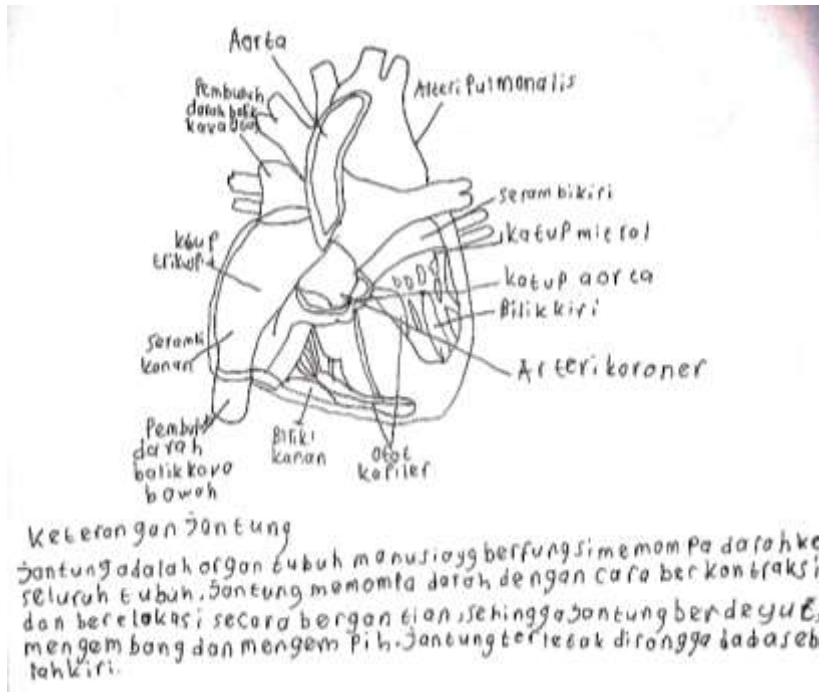 Aorta
Pembuluh
darah balik
kava atas
Arteri Pulmonalis
serambi kiri
katup mitral
katup aorta
Bilik kiri
Arteri koroner
trikup
serambi
kanan
Pembuluh
darah
balik kava
bawah
Biliki
kanan
otot
kapiler
keterangan jantung
Jantung adalah organ tubuh manusia yg berfungsi memompa darah ke
seluruh tubuh. Jantung memompa darah dengan cara berkontraksi
dan berelakasi secara bergantian, sehingga jantung berdeyut,
mengembang dan mengempih. Jantung terletak dirongga dada seb
lah kiri.